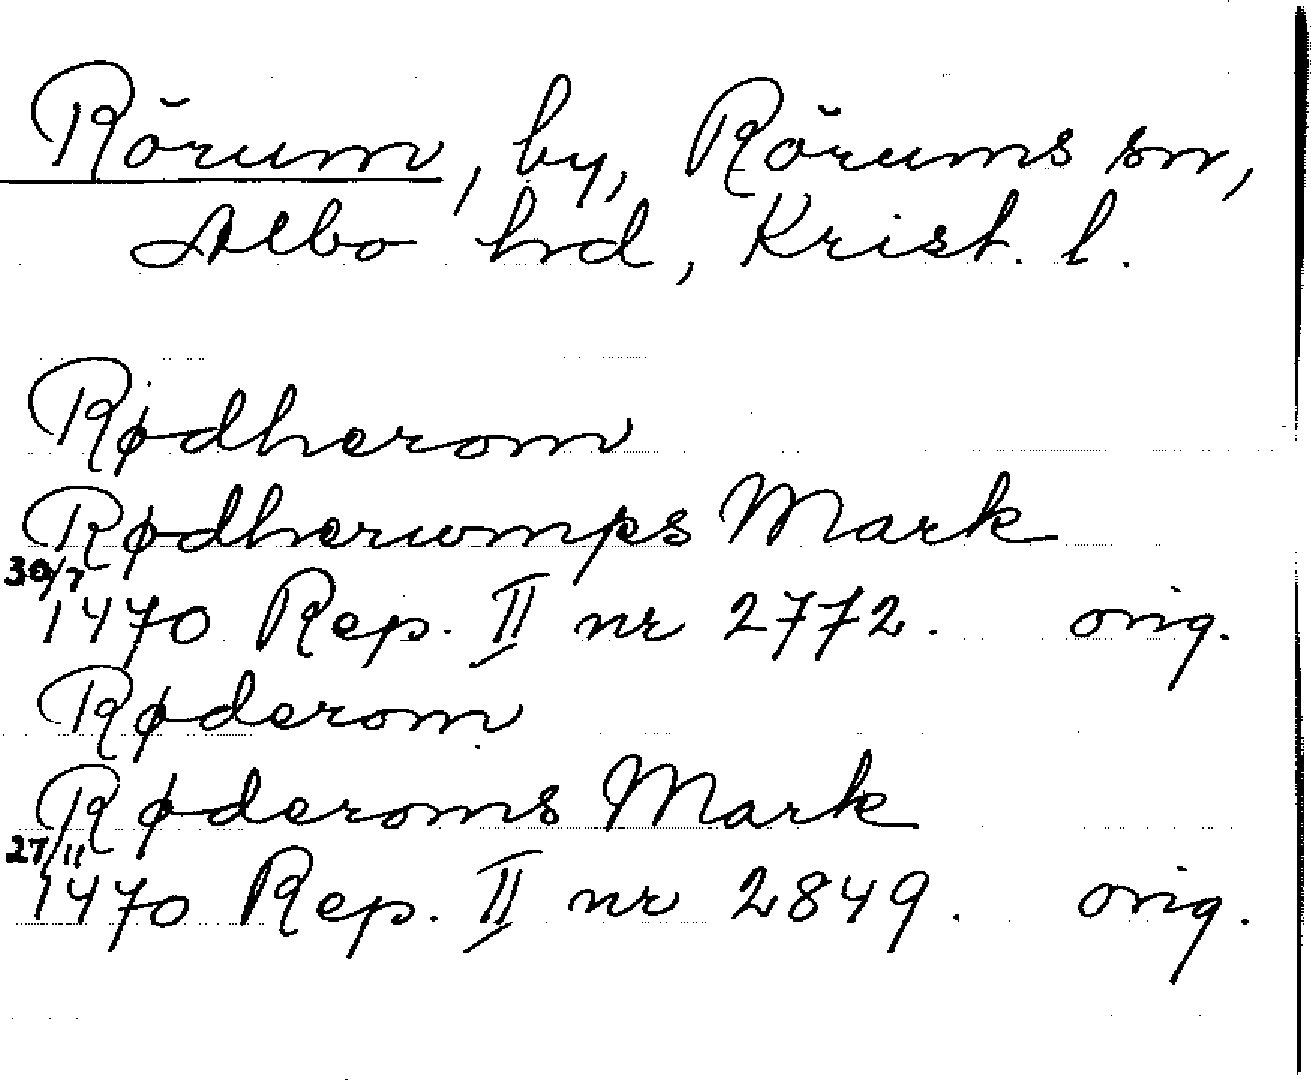 Rörum, by, Rörums sn,
Albo hd, Krist. l.
Rødherom
Rødherwmps Mark
30/7
1470 Rep. II nr 2772. orig.
Røderom
Røderoms Mark
27/11
1470 Rep. II nr 2849. orig.